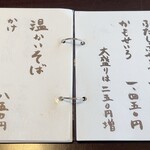 かもせいろ
一、四五〇円
大盛りは二五〇円増
温かいそば
かけ
八五〇円